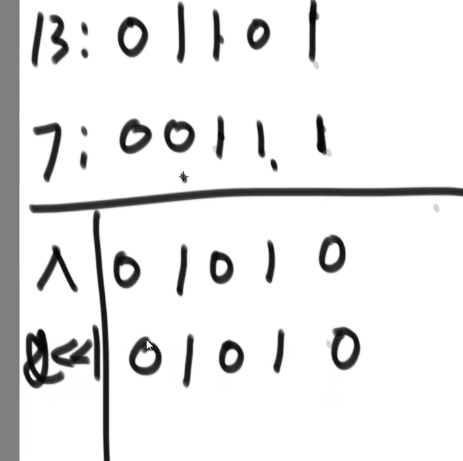 13: 0 1 1 0 1
7: 0 0 1 1 1
^ 0 1 0 1 0
&<<1 0 1 0 1 0